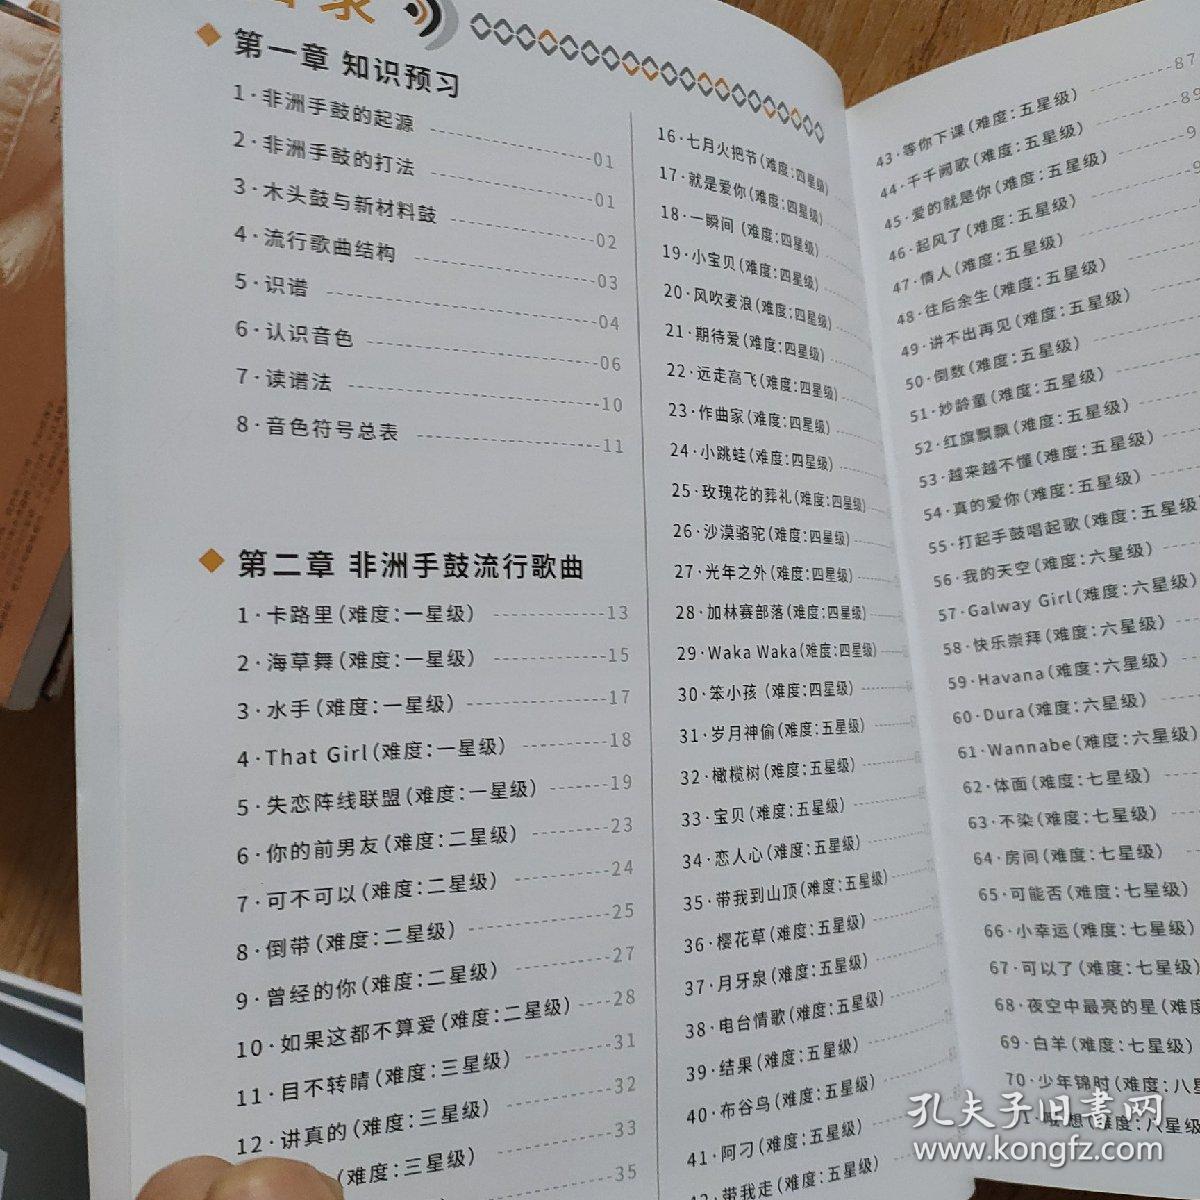 第一章 知识预习
1·非洲手鼓的起源 01
2·非洲手鼓的打法 01
3·木头鼓与新材料鼓 02
4·流行歌曲结构 03
5·识谱 04
6·认识音色 06
7·读谱法 10
8·音色符号总表 11
第二章 非洲手鼓流行歌曲
1·卡路里(难度:一星级) 13
2·海草舞(难度:一星级) 15
3·水手(难度:一星级) 17
4·That Girl(难度:一星级) 18
5·失恋阵线联盟(难度:一星级) 19
6·你的前男友(难度:二星级) 23
7·可不可以(难度:二星级) 24
8·倒带(难度:二星级) 25
9·曾经的你(难度:二星级) 27
10·如果这都不算爱(难度:二星级) 28
11·目不转睛(难度:三星级) 31
12·讲真的(难度:三星级) 32
(难度:三星级) 33
35
16·七月火把节(难度:四星级)
17·就是爱你(难度:四星级)
18·一瞬间(难度:四星级)
19·小宝贝(难度:四星级)
20·风吹麦浪(难度:四星级)
21·期待爱(难度:四星级)
22·远走高飞(难度:四星级)
23·作曲家(难度:四星级)
24·小跳蛙(难度:四星级)
25·玫瑰花的葬礼(难度:四星级)
26·沙漠骆驼(难度:四星级)
27·光年之外(难度:四星级)
28·加林赛部落(难度:四星级)
29·Waka Waka(难度:四星级)
30·笨小孩(难度:四星级)
31·岁月神偷(难度:五星级)
32·橄榄树(难度:五星级)
33·宝贝(难度:五星级)
34·恋人心(难度:五星级)
35·带我到山顶(难度:五星级)
36·樱花草(难度:五星级)
37·月牙泉(难度:五星级)
38·电台情歌(难度:五星级)
39·结果(难度:五星级)
40·布谷鸟(难度:五星级)
41·阿刁(难度:五星级)
带我走(难度:五星级)
43·等你下课(难度:五星级) 87
44·千千阙歌(难度:五星级) 89
45·爱的就是你(难度:五星级)
46·起风了(难度:五星级)
47·情人(难度:五星级)
48·往后余生(难度:五星级)
49·讲不出再见(难度:五星级)
50·倒数(难度:五星级)
51·妙龄童(难度:五星级)
52·红旗飘飘(难度:五星级)
53·越来越不懂(难度:五星级)
54·真的爱你(难度:五星级)
55·打起手鼓唱起歌(难度:五星级
56·我的天空(难度:六星级)
57·Galway Girl(难度:六星级)
58·快乐崇拜(难度:六星级)
59·Havana(难度:六星级)
60·Dura(难度:六星级)
61·Wannabe(难度:六星级)
62·体面(难度:七星级)
63·不染(难度:七星级)
64·房间(难度:七星级)
65·可能否(难度:七星级)
66·小幸运(难度:七星级)
67·可以了(难度:七星级)
68·夜空中最亮的星(难度
69·白羊(难度:七星级)
70·少年锦时(难度:八星
想(难度:八星级
孔夫子旧书网
www.kongfz.com